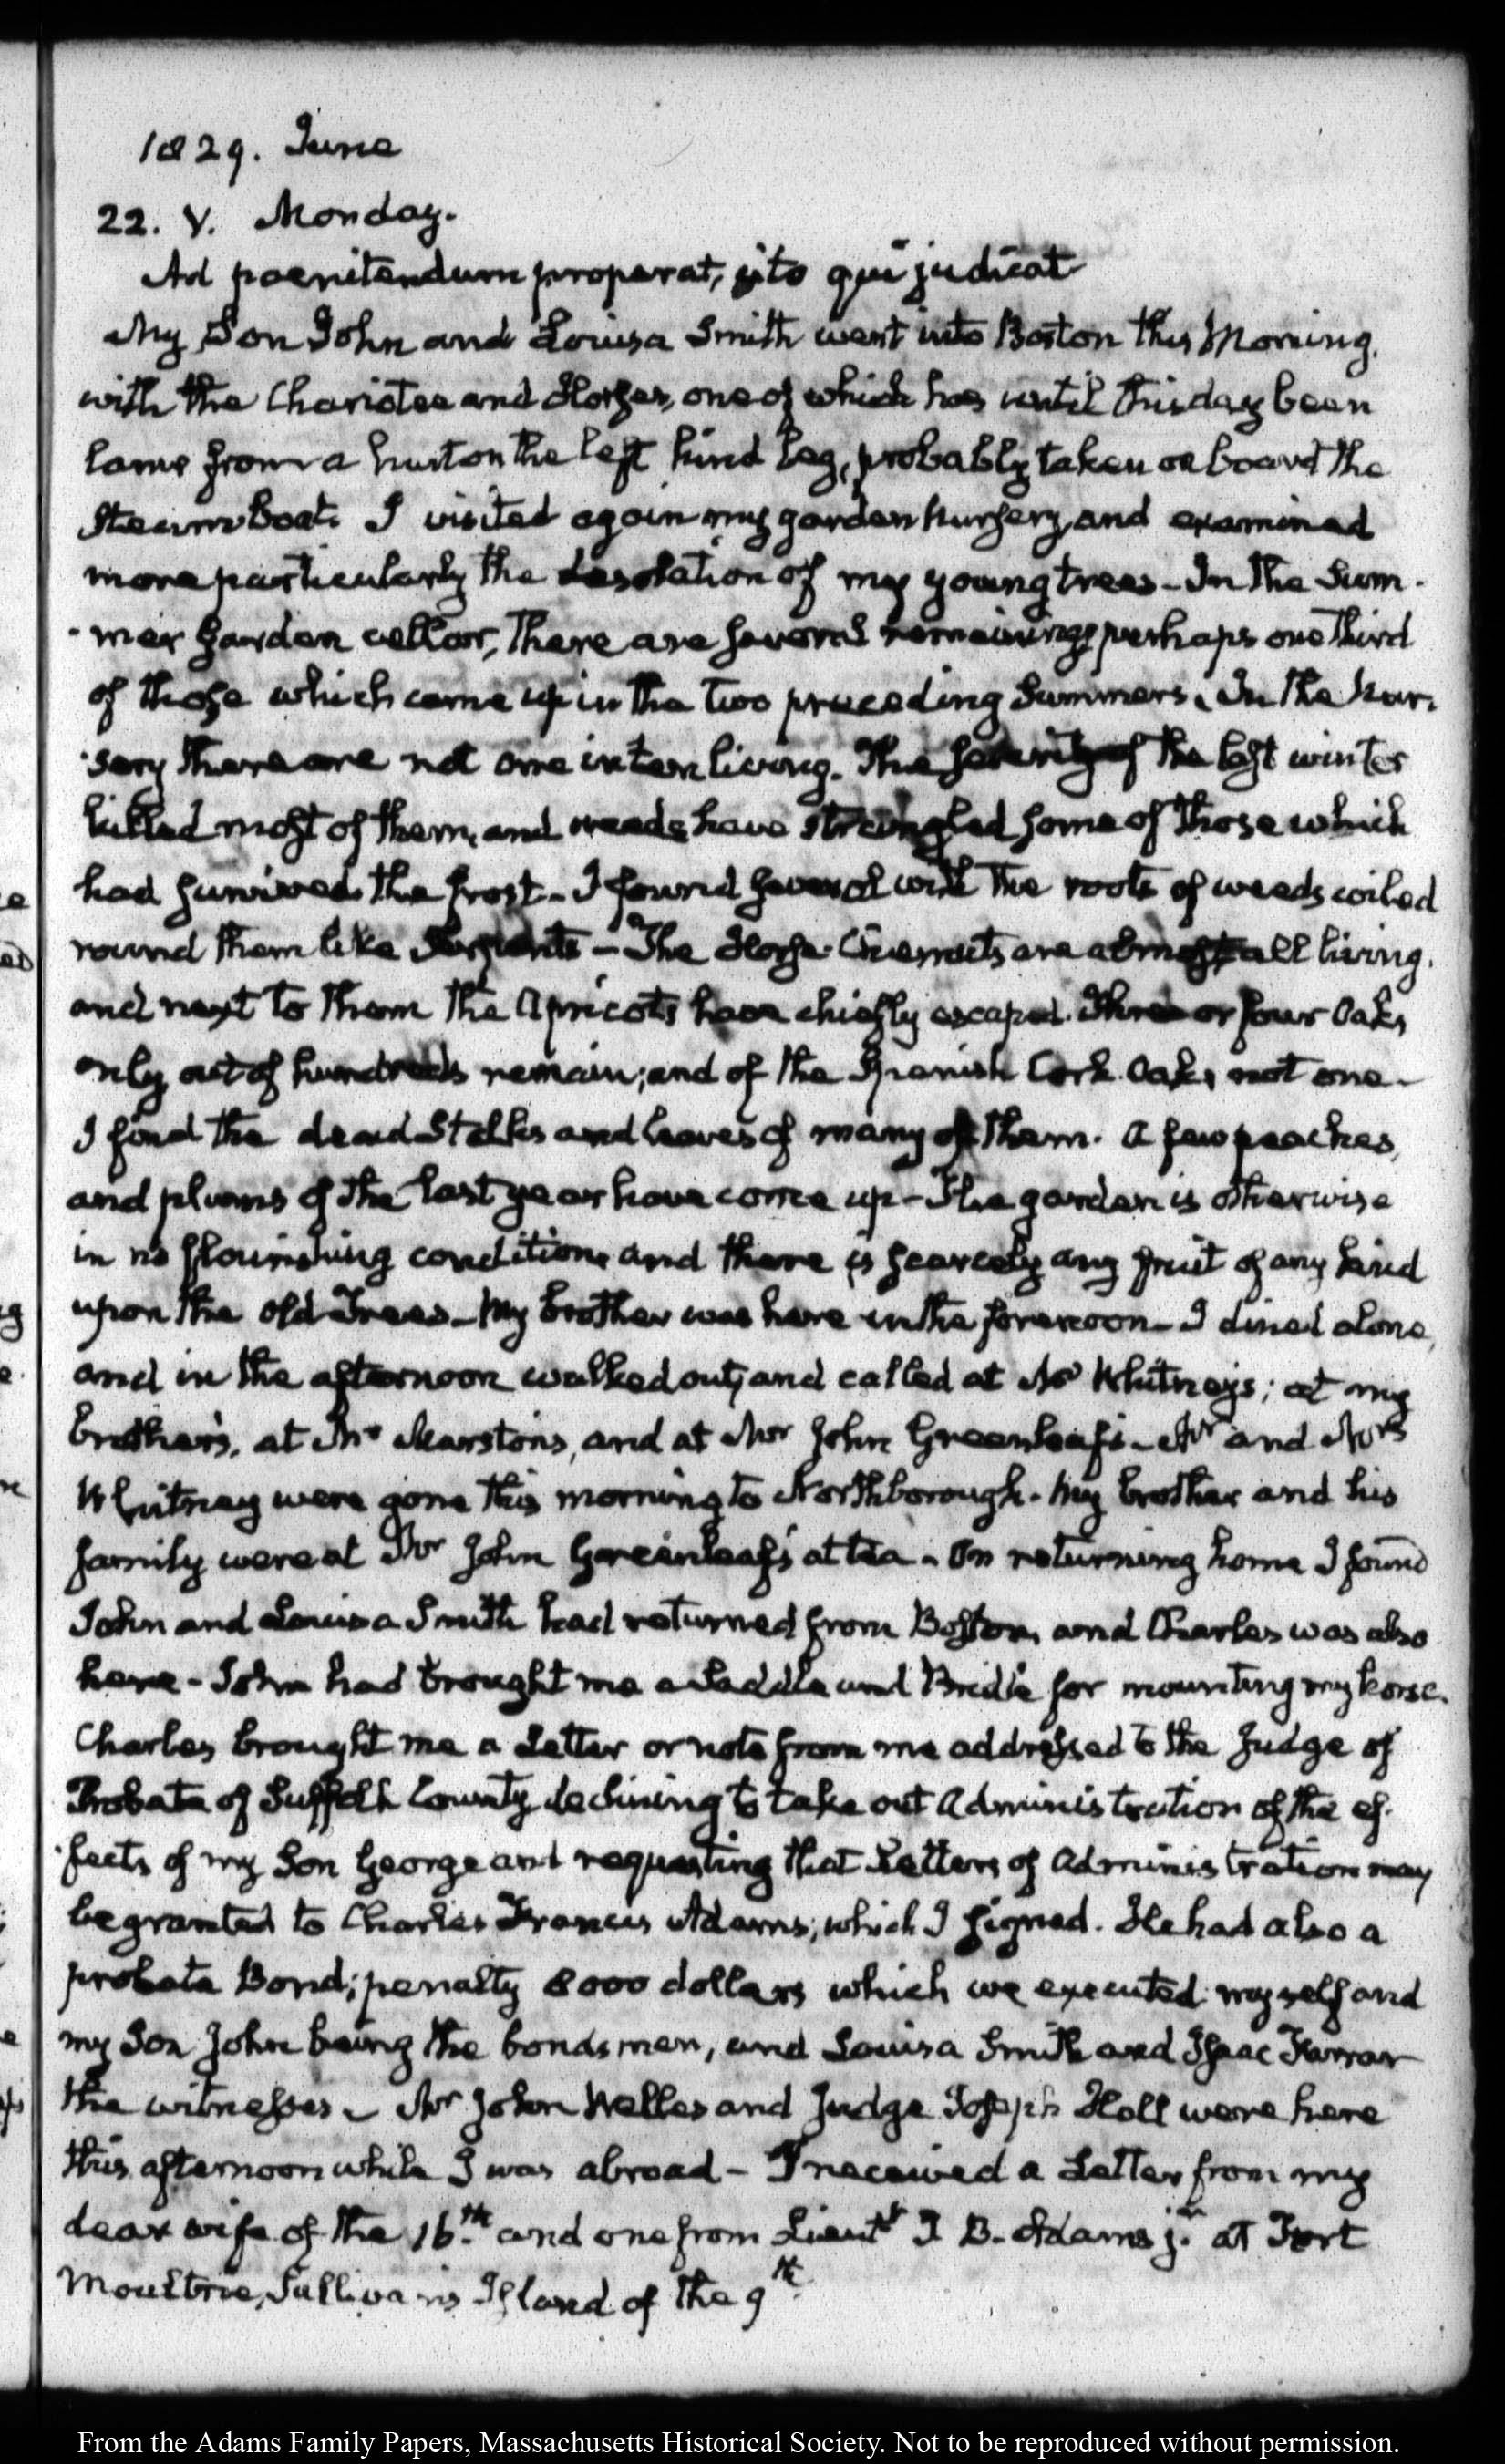 1829. June
22. V. Monday.
Ad poenitendum properat, cito qui judicat
My Son John and Louisa Smith went into Boston this Morning,
with the Chariotee and Horses, one of which has until this day been
lame from a hurt on the left hind leg, probably taken on board the
Steam Boat. I visited again my garden Nursery, and examined
more particularly the desolation of my young trees - In the Sum-
-mer Garden cellar, there are several remaining, perhaps one third
of those which came up in the two preceding Summers. In the Nur-
-sery there are not one in ten living. The severity of the last winter
killed most of them, and weeds have strangled some of those which
had survived the frost - I found several with the roots of weeds coiled
round them like Serpents - The Horse Chesnuts are almost all living,
and next to them the Apricots have chiefly escaped. Three or four Oaks,
only out of hundreds remain; and of the Spanish Cork Oaks, not one -
I find the dead Stalks and leaves of many of them. A few peaches,
and plums of the last year have come up - The garden is otherwise
in no flourishing condition, and there is scarcely any fruit of any kind
upon the old Trees - My brother was here in the forenoon - I dined alone,
and in the afternoon walked out, and called at Mr Whitney's; at my
brother's, at Mrs Marston's, and at Mr John Greenleaf's - Mr and Mrs
Whitney were gone this morning to Northborough. My brother and his
family were at Mr John Greenleaf's at tea - On returning home I found
John and Louisa Smith had returned from Boston, and Charles was also
here - John had brought me a Saddle and Bridle for mounting my horse.
Charles brought me a Letter or note from me addressed to the Judge of
Probate of Suffolk County declining to take out Administration of the ef-
-fects of my Son George and requesting that Letters of Administration may
be granted to Charles Francis Adams; which I signed. He had also a
probate Bond; penalty 8000 dollars which we executed: myself and
my Son John being the bondsmen, and Louisa Smith and Isaac Farrar
the witnesses - Mr John Welles and Judge Joseph Hall were here
this afternoon while I was abroad - I received a Letter from my
dear wife of the 16th. and one from Lieutt J. B. Adams jr. at Fort
Moultrie, Sullivan's Island of the 9th.
From the Adams Family Papers, Massachusetts Historical Society. Not to be reproduced without permission.